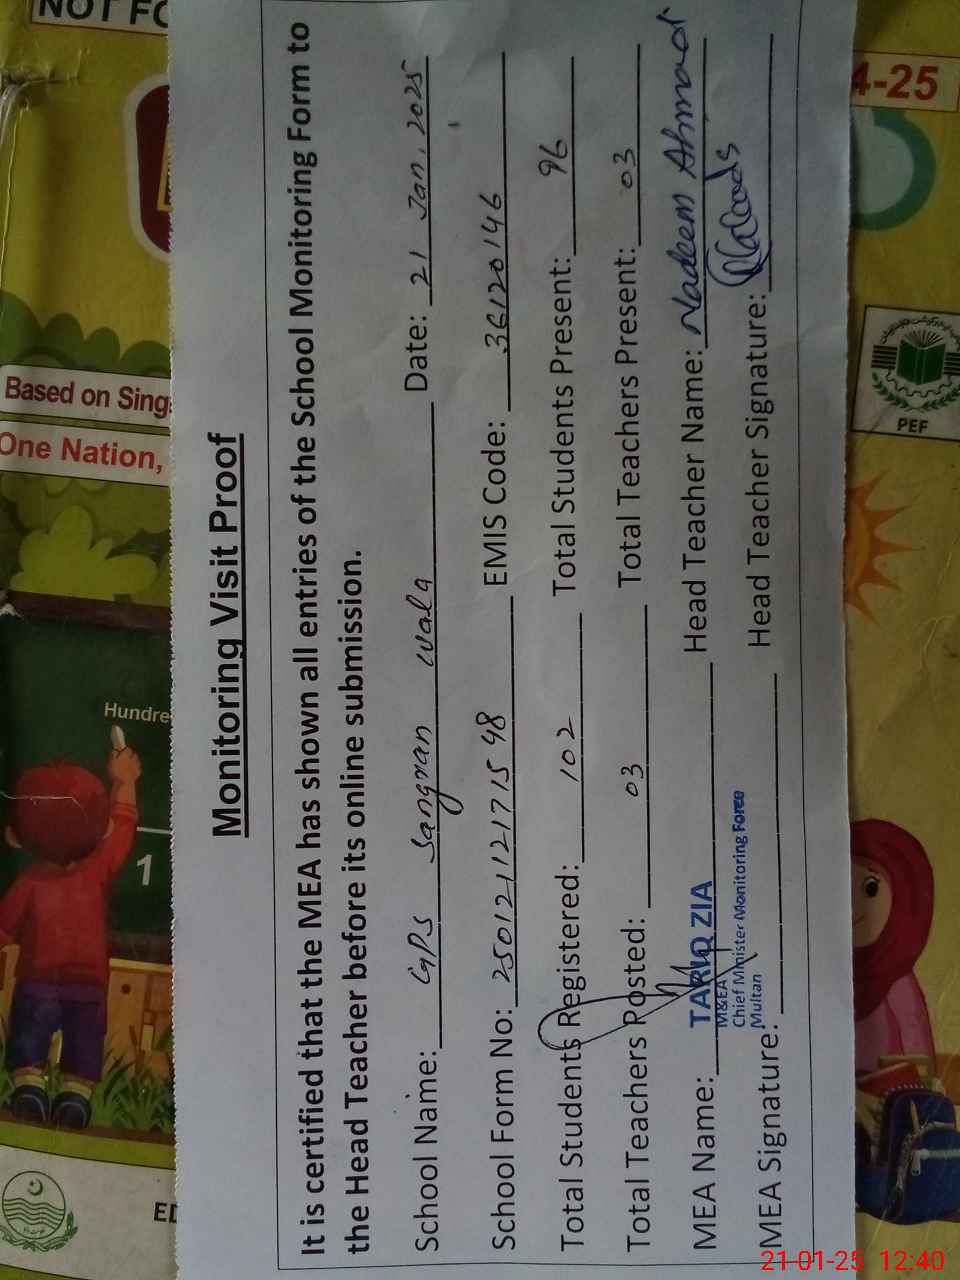 Monitoring Visit Proof
It is certified that the MEA has shown all entries of the School Monitoring Form to
the Head Teacher before its online submission.
School Name: GPS Sangran wala Date: 21 Jan, 2025
School Form No: 250121121715 98 EMIS Code: 36120146
Total Students Registered: 102 Total Students Present: 96
Total Teachers Posted: 03 Total Teachers Present: 03
MEA Name: TARIQ ZIA Head Teacher Name: Nadeem Ahmad
M&EA
Chief Minister Monitoring Force
Multan
MEA Signature: Head Teacher Signature:
NOT FO
4-25
Based on Sing
One Nation,
Hundre
1
PEF
ED
21-01-25 12:40